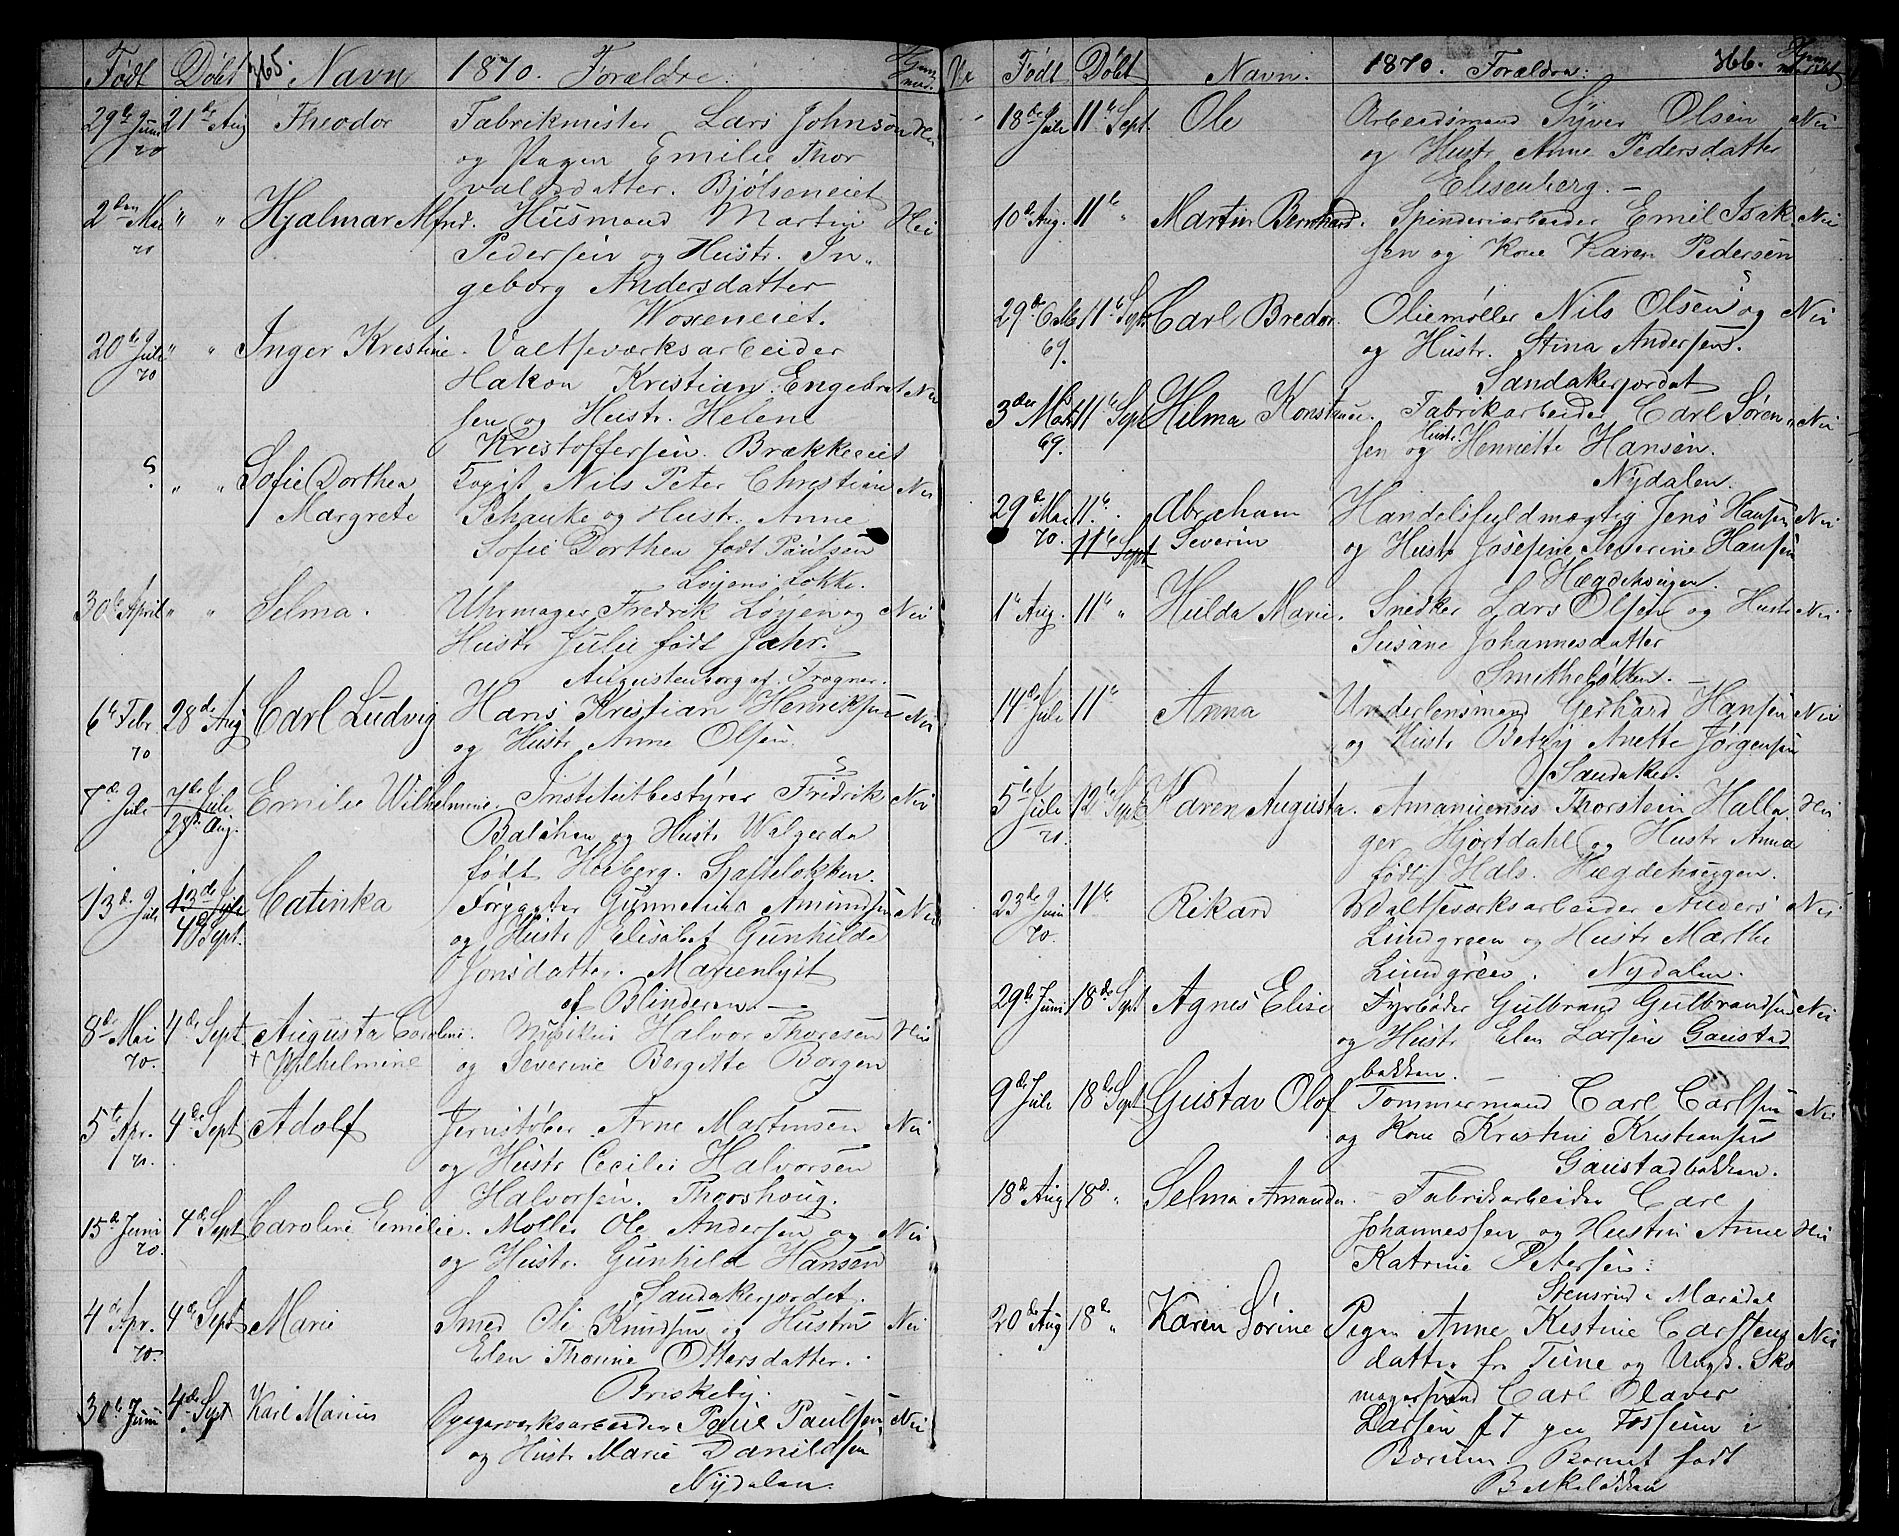 Født Døbt 365. Navn 1870. Forældre:
29de Juni 70 21de Aug Theodor Fabrikmester Lars Johnson
og Pagen Emilie Thor
valdsdatter. Bjølseneiet
2den Mai 70 " " Hjalmar Alfred. Husmand Martin Nei
Pedersen og Hustr. In„
geborg Andersdatter
Woxeneiet.
20de Juli 70 " " Inger Kristine. Valtseværksarbeider
Hakon Kristian Engebret Nei
sen og Hustr. Helene
Kristoffersen. Brækkeeiet
" " Sofie Dorthea Logist Nils Peter Christian Nei
Margrete Schanke og Hustr. Anne
Sofie Dorthea født Paulsen
Løyens Løkke.
30te April " " Selma. Uhrmager Fredrik Løyen og Nei
Hustr Julie født Jahr.
Augustenborg af Frogner.
6te Febr 70 28de Aug Carl Ludvig Hans Kristian Henriksen Nei
og Hustr Anne Olsen.
7de Juli 7de Juli 28de Aug. Emilie Wilhelmine. Institutbestyrer Fredrik Nei
Balchen og Hustr Walgerda
født Heiberg. Sjøfteløkken.
13de Juli 13de Juli 4de Sept. Catinka Forgjater Gunnerius Amundsen Nei
og Hustr Elisabet Gunhilde
Jonsdatter. Marienlyst
af Blindern. —
8de Mai 70. 4de Sept. Augusta Caroline. Musikus Halvor Thoresen Nei
+ Wilhelmine og Severine Bergitte Borgen
5te Apr. 70. 4de Sept Adolf Jernstøber Arne Martinsen Nei
og Hustr Cecilie Halvorsen
Halvorsen. Thorshoug.
15de Juni 70. 4de Sept Caroline Emilie. Møller Ole Andersen og Nei
og Hustr. Gunhild Hansen
Sandakerjordet.
4de Apr. 70. 4de Sept Marie Smed Ole Knudsen og Hustru Nei
Elen Thorine Ottersdatter.
Briskeby.
30te Juni 4de Sept Karl Marius Gasværksarbeider Paul Paulsen Nei
og Hustr Marie Danildsen
Nydalen.
No Født Døbt Navn. 1870. Forældre: 366.
18de Juli 11te Sept. Ole Arbeidsmand Syver Olsen Nei
og Hustr Anne Pedersdatter
Elisenberg. —
10de Aug. 11te " Martin Bernhard. Spinderiarbeider Emil Isak Nei
sen og Kone Karen Pedersen
29de Octbr 69. 11te Sept Carl Bredor. Oliemøller Nils Olsen og Nei
og Hustr. Stina Andersen.
Sandakerjordet
3die Marts 69. 11te Sept Hilma Konstance. Fabrikarbeider Carl Søren„ Nei
sen og Hustr. Henriette Hansen.
Nydalen.
29de Mai 70. 11te " Abraham Handelsfuldmægtig Jens Hansen Nei
11te Sept Severin og Hustr Josefine Severine Hansen
Hægdehougen.
1te Aug. 11te " Hulda Marie. Snedker Lars Olsen og Hustr Nei
Susane Johannesdatter
Smitheløkken. —
14de Juli 11te Anna Underlensmand Gerhard Hansen Nei
og Hustr Betzy Anette Jørgensen
Sandaker.
5te Juli 70. 12te Sept Karen Augusta. Amanuensis Thorstein Halla Nei
ger Hjortdahl og Hustr Anna
født Hals. Hægdehougen.
23de Juni 70. 11te Rikard Valtseværksarbeider Anders Nei
Lundgreen og Hustr Marthe
Lundgreen. Nydalen.
29de Juni 18de Sept Agnes Elise Fyrbøder Gulbrand Gulbrandsen Nei
og Hustr Elen Larsen Gaustad
bakken. —
9de Juli 18de Sept Gustav Olof Tømmermand Carl Carlsen Nei
og Kone Kristine Kristiansen
Gaustadbakken.
18de Aug 18de " Selma Amanda. Fabrikarbeider Carl
Johannessen og Hustru Anne Nei
Katrine Petersen:
Stensrud i Maridal
20de Aug 18de " Karen Sørine Pigen Anne Kestine Carstens Nei
datter fr Tune og Ungk. Sko
magersvend Carl Olaver
Larsen ft paa Fossum i
Bærum. Barnet født
Bakkeløkken